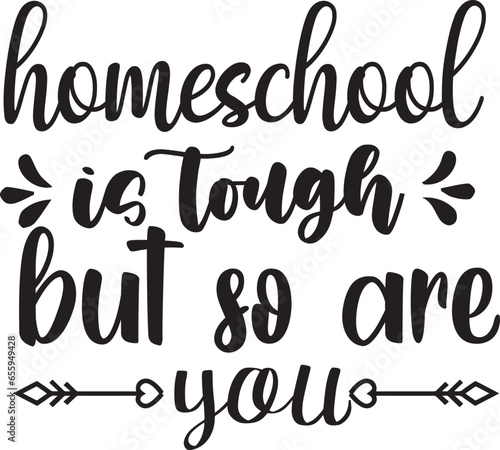 homeschool
is tough
but so are
you
Adobe Stock | #655949428